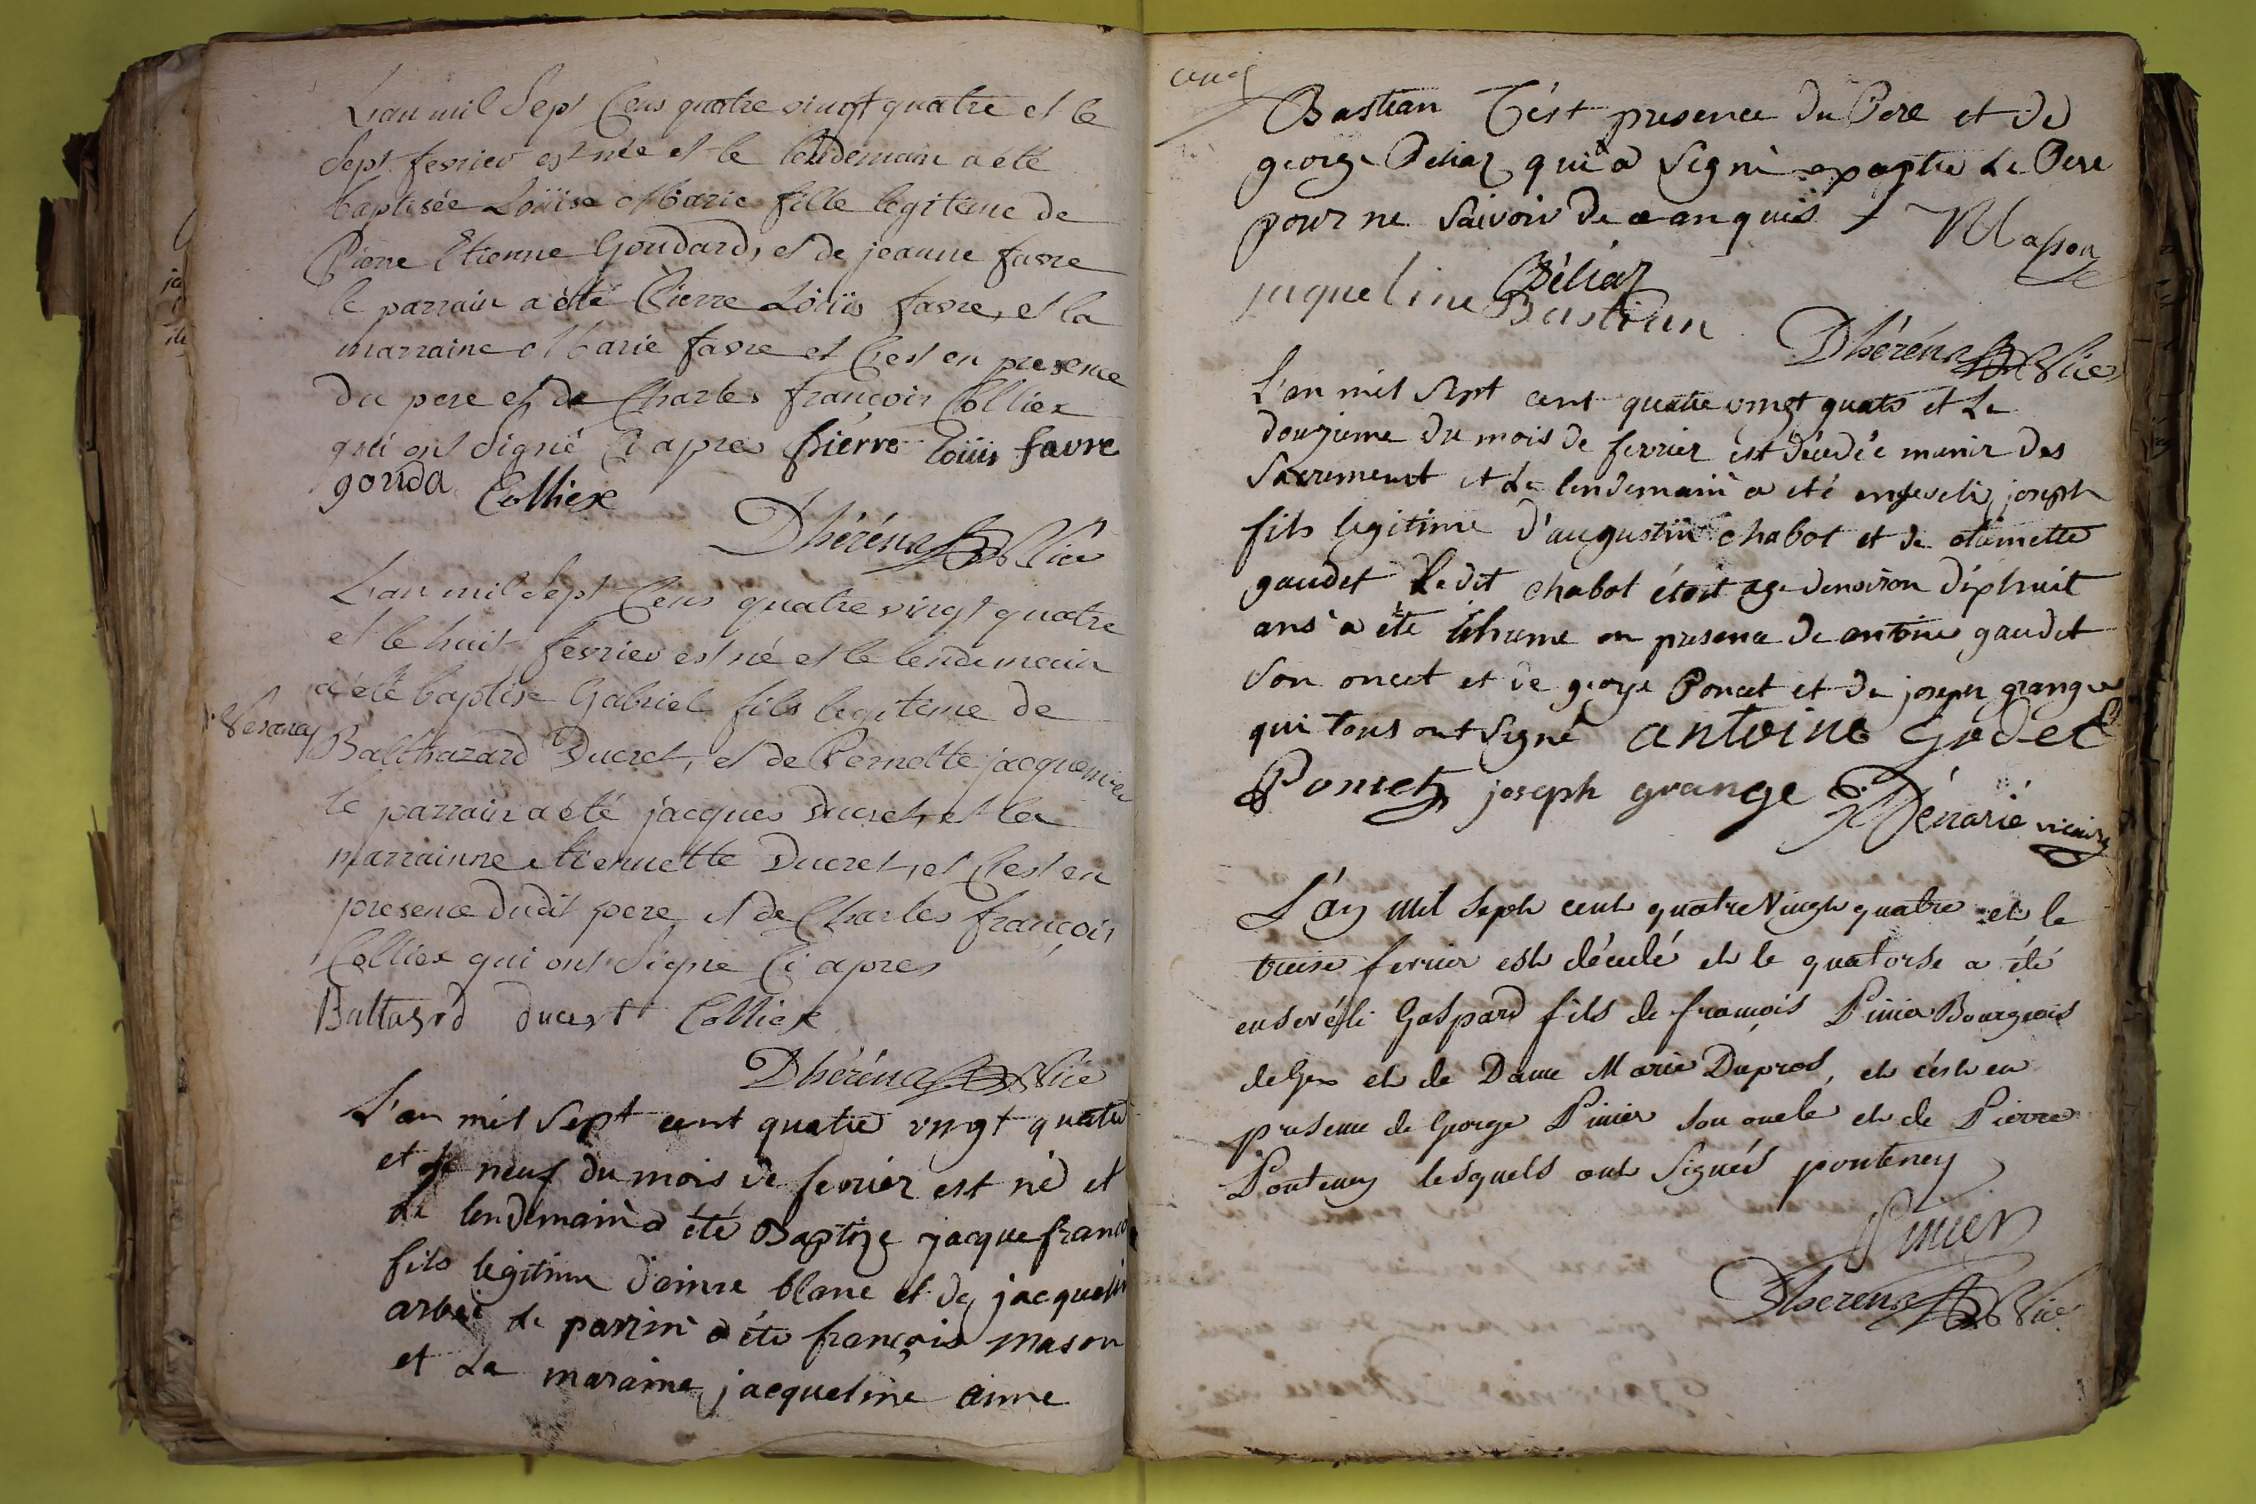 L'an mil Sept Cens quatre vingt quatre et le
Sept fevrier est née et le lendemain a été
baptisée Loüise Marie fille legiteme de
Pierre Etienne Goudard, et de jeanne favre
le parrain a été Pierre Loüis favre, et la
marraine Marie favre et C'est en presence
du pere et de Charles françois Colliex
qui ont signé Ci apres pierre loüis favre
gouda Colliex
Dhéréns Vice
L'an mil Sept Cens quatre vingt quatre
et le huit fevrier est né et le lendemain
a été baptise Gabriel fils legiteme de
Vesancy
Balthazard Ducret, et de Pernette jacquemier
le parrain a été jacques Ducret, et la
marrainne etiennette Ducret, et C'est en
presence dudit pere et de Charles françois
Colliex qui ont Signe Ci apres
Baltasrd ducret Colliex
Dhéréns Vice
L'an mil Sept cent quatre vingt quatre
et le neuf du mois de fevrier est né et
le lendemain a été Baptize jacque franco
fils legitime d'aimre blanc et de jacquelin
le parrin a été françois mason
et La maraine jacqueline aime
Bastian C'est presence du Pere et de
george Péliaz qui a Signé exapté Le Pere
pour ne Saivoir de ce anquis Masson
Péliaz
jaqueline Bastian
Dhéréns Vice
L'an mil sept cent quatre vingt quatr et Le
douzieme du mois de fevrier est décédée munir des
Sacrement et Le lendemain a eté enseveli joseph
fils legitime d'augustin chabot et de etiennette
gaudet Ledit chabot étoit age denviron dixhuit
ans a été inhume en presence de antoine gaudet
Son oncet et de george Poncet et de joseph grange
qui tous ont signé antoine Godet
Poncet joseph grange
Dénarié vicaire
L'an mil Septe cent quatre Vingt quatre et le
treise fevrier est décédé et le quatorse a été
ensevéli Gaspard fils de françois Pinier Bourgeois
de Gex et de Dame Marie Dupros, et c'est en
presence de George Pinier son oncle et de Pierre
Ponteney lesquels ont signés ponteney
Pinier
Dhérens Vice